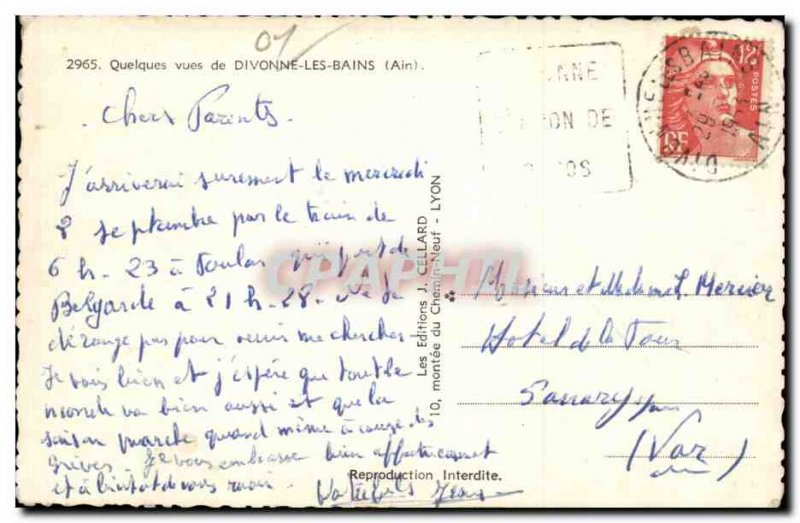 2965. Quelques vues de DIVONNE-LES-BAINS (Ain).
Chers Parents.
J'arriverai surement le mercredi
8 septembre par le train de
6 h. 23 à Toulon qui part de
Belgarde à 21 h. 28. Ne se
dérange pas pour venir me chercher
Je vais bien et j'espère que tout le
monde va bien aussi et que la
saison marche quand même à cause des
grèves. Je vous embrasse bien affectueusement
et à bientôt de vous revoir.
Votre fils Jean
Les Editions J. CELLARD
10, montée du Chemin-Neuf - LYON
Reproduction Interdite.
NNE
ON DE
OS
12F
POSTES
RF
DIVONNE LES BAINS
AIN
CPAPHIL
Monsieur et Madame L Mercier
Hotel de la Tour
Sanary
(Var)